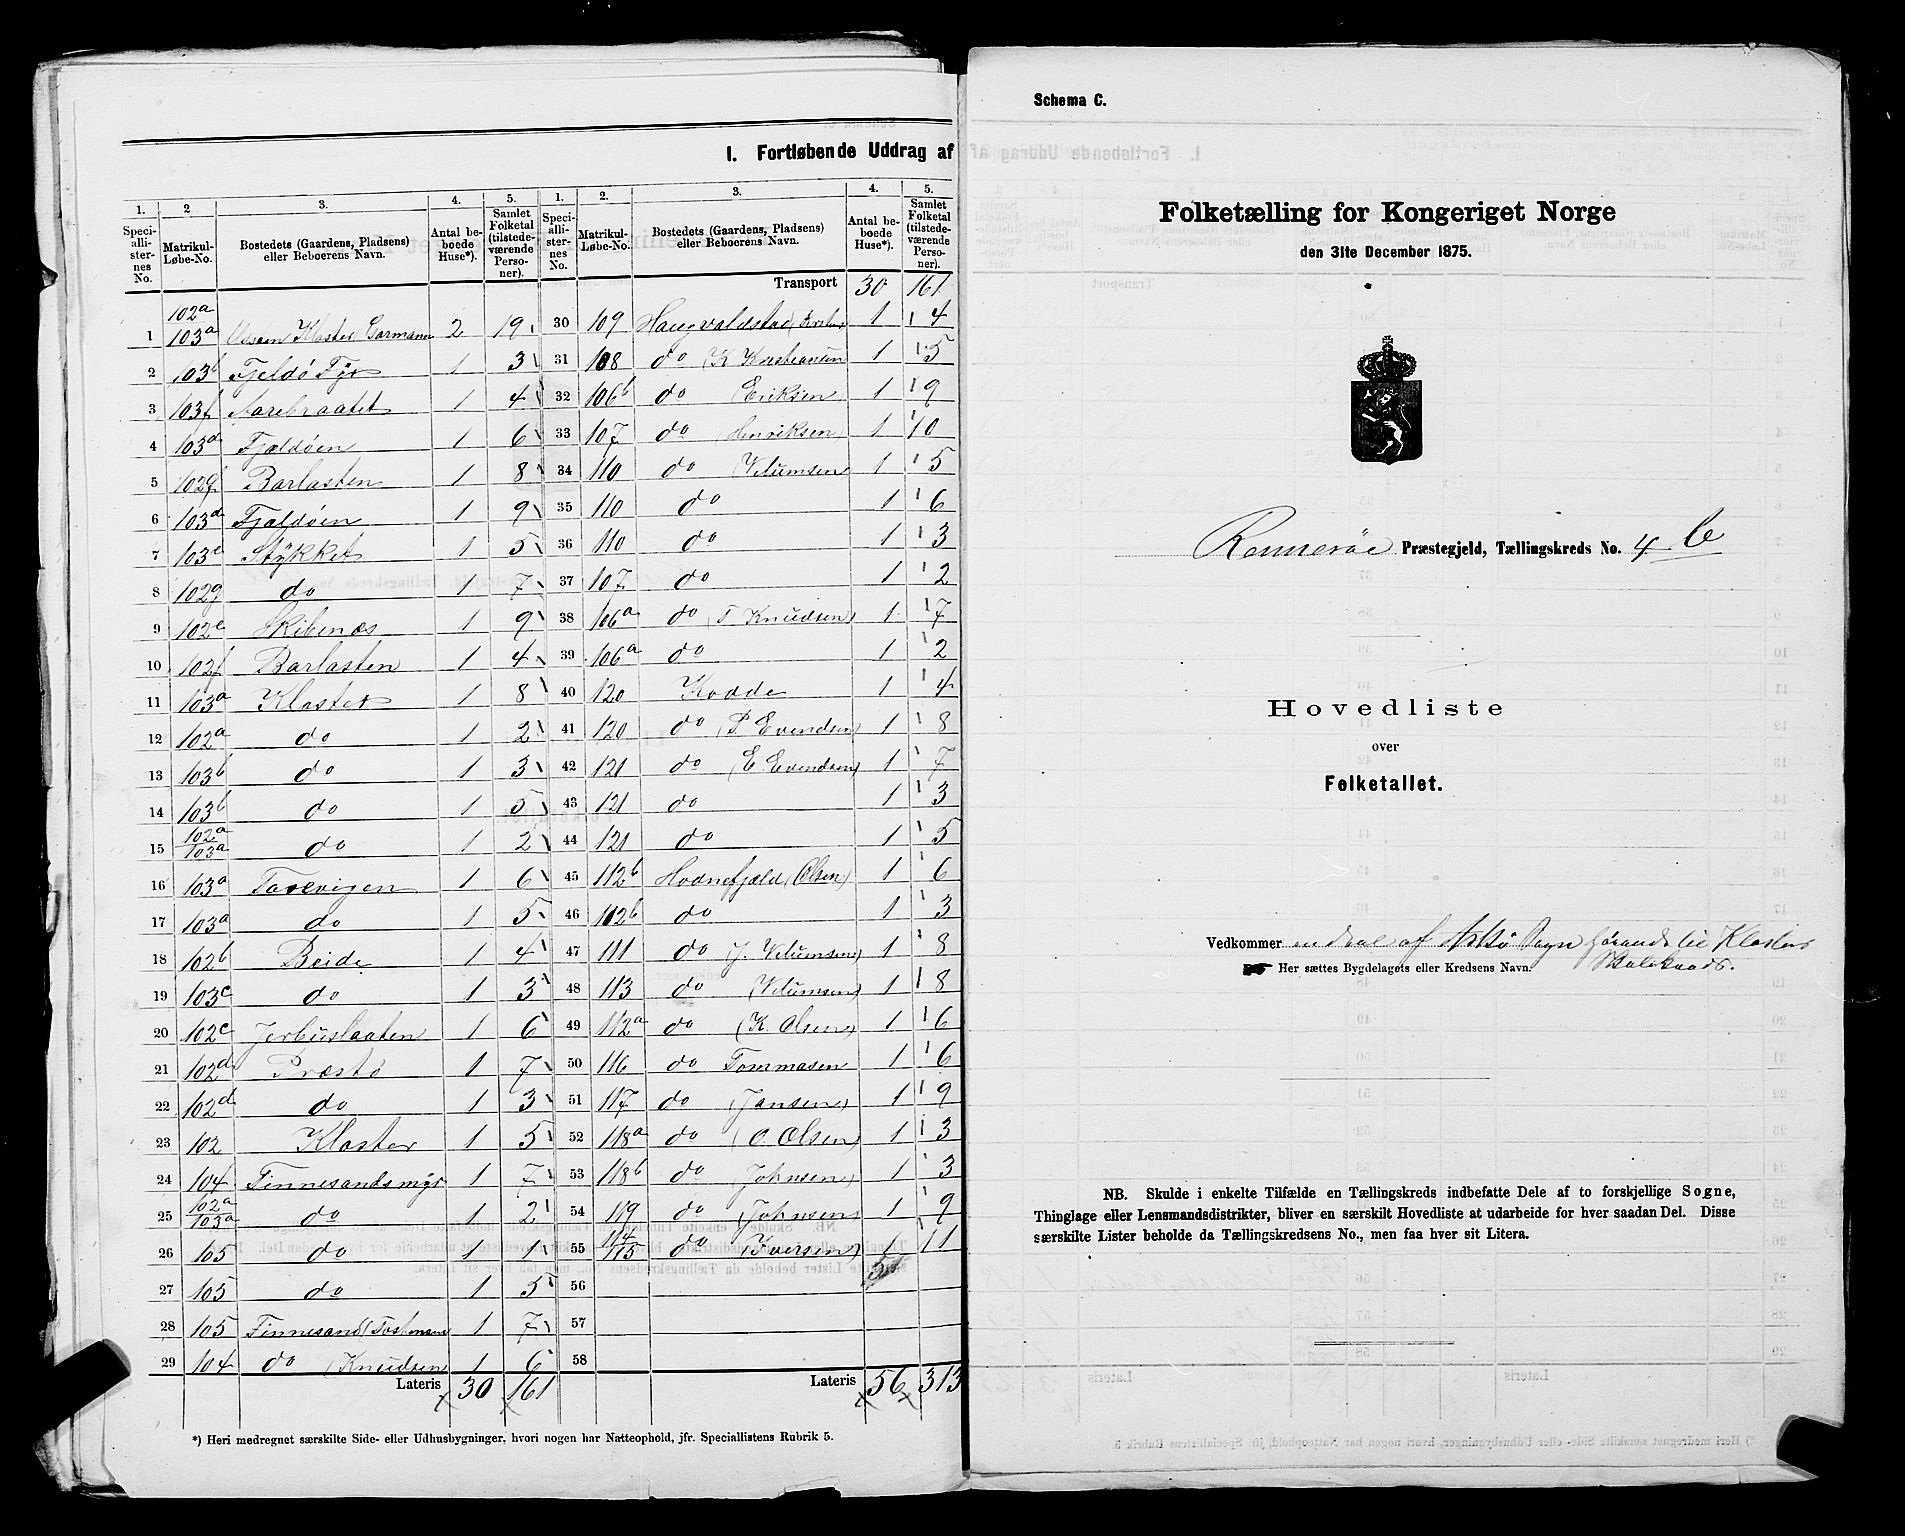 I. Fortløbende Uddrag af
1. 2 3. 4. 5. 1. 2. 3. 4. 5.
Speciallisternes No. Matrikul-Løbe-No. Bostedets (Gaardens, Pladsens) eller Beboerens Navn. Antal beboede Huse*). Samlet Folketal (tilstedeværende Personer). Speciallisternes No. Matrikul-Løbe-No. Bostedets (Gaardens, Pladsens) eller Beboerens Navn. Antal beboede Huse*). Samlet Folketal (tilstedeværende Personer).
Transport 30 161
1 102a 103a Utsten Kloster (Garmann 2 19 30 109 Haugvaldstad 1 4
2 103b Fjeldø Fyr 1 3 31 108 do (K Kristiansen 1 5
3 103f Aarebraatet 1 4 32 106b do Eriksen) 1 9
4 103d Fjældøen 1 6 33 107 do (Henriksen) 1 10
5 102f Barlasten 1 8 34 110 do (Velumsen) 1 5
6 103d Fjældøen 1 9 35 110 do 1 6
7 103e Stykket 1 5 36 110 do 1 3
8 102g do 1 7 37 107 do 1 2
9 102e Skibenæs 1 9 38 106a do (T Knudsen) 1 7
10 102f Barlasten 1 4 39 106a do 1 2
11 103a Kloster 1 8 40 120 Hodde 1 4
12 102a do 1 2 41 120 do (P. Evendsen) 1 8
13 103b do 1 3 42 121 do (E Evendsen) 1 7
14 103b do 1 5 43 121 do 1 3
15 102a 103a do 1 2 44 121 do 1 5
16 103a Tarevigen 1 6 45 112b Hodnefjæld (Olsen) 1 6
17 103a do 1 5 46 112b do 1 3
18 102b Beide 1 4 47 111 do (J. Velumsen) 1 8
19 103c do 1 3 48 113 do (Velumsen) 1 8
20 102c Jerbuslaaten 1 6 49 112a do (K. Olsen) 1 6
21 102d Præstø 1 7 50 116 do Tommasen 1 6
22 102d do 1 3 51 117 do (Jansen) 1 9
23 102 Kloster 1 5 52 118a do (O. Olsen) 1 3
24 104 Finnesandsmyr 1 7 53 118b do (Johnsen) 1 3
25 102a 103a do 1 2 54 119 do (Johnsen) 1 9
26 105 do 1 1 55 114 115 do (Iversen) 1 11
27 105 do 1 5 56
28 105 Finnesand (Tostensen 1 7 57
29 104 do (Knudsen 1 6 58
Lateris 30 161 Lateris 56 313
*) Heri medregnet særskilte Side- eller Udhusbygninger, hvori nogen har Natteophold, jfr. Speciallistens Rubrik 5.
Schema C.
Folketælling for Kongeriget Norge
den 31te December 1875.
Rennesøe Præstegjeld, Tællingskreds No. 4 b
Hovedliste
over
Folketallet.
Vedkommer en deel af Sogn hørende til Klosters
Her sættes Bygdelagets eller Kredsens Navn. Skoleraads.
NB. Skulde i enkelte Tilfælde en Tællingskreds indbefatte Dele af to forskjellige Sogne,
Thinglage eller Lensmandsdistrikter, bliver en særskilt Hovedliste at udarbeide for hver saadan Del. Disse
særskilte Lister beholde da Tællingskredsens No., men faa hver sit Litera.